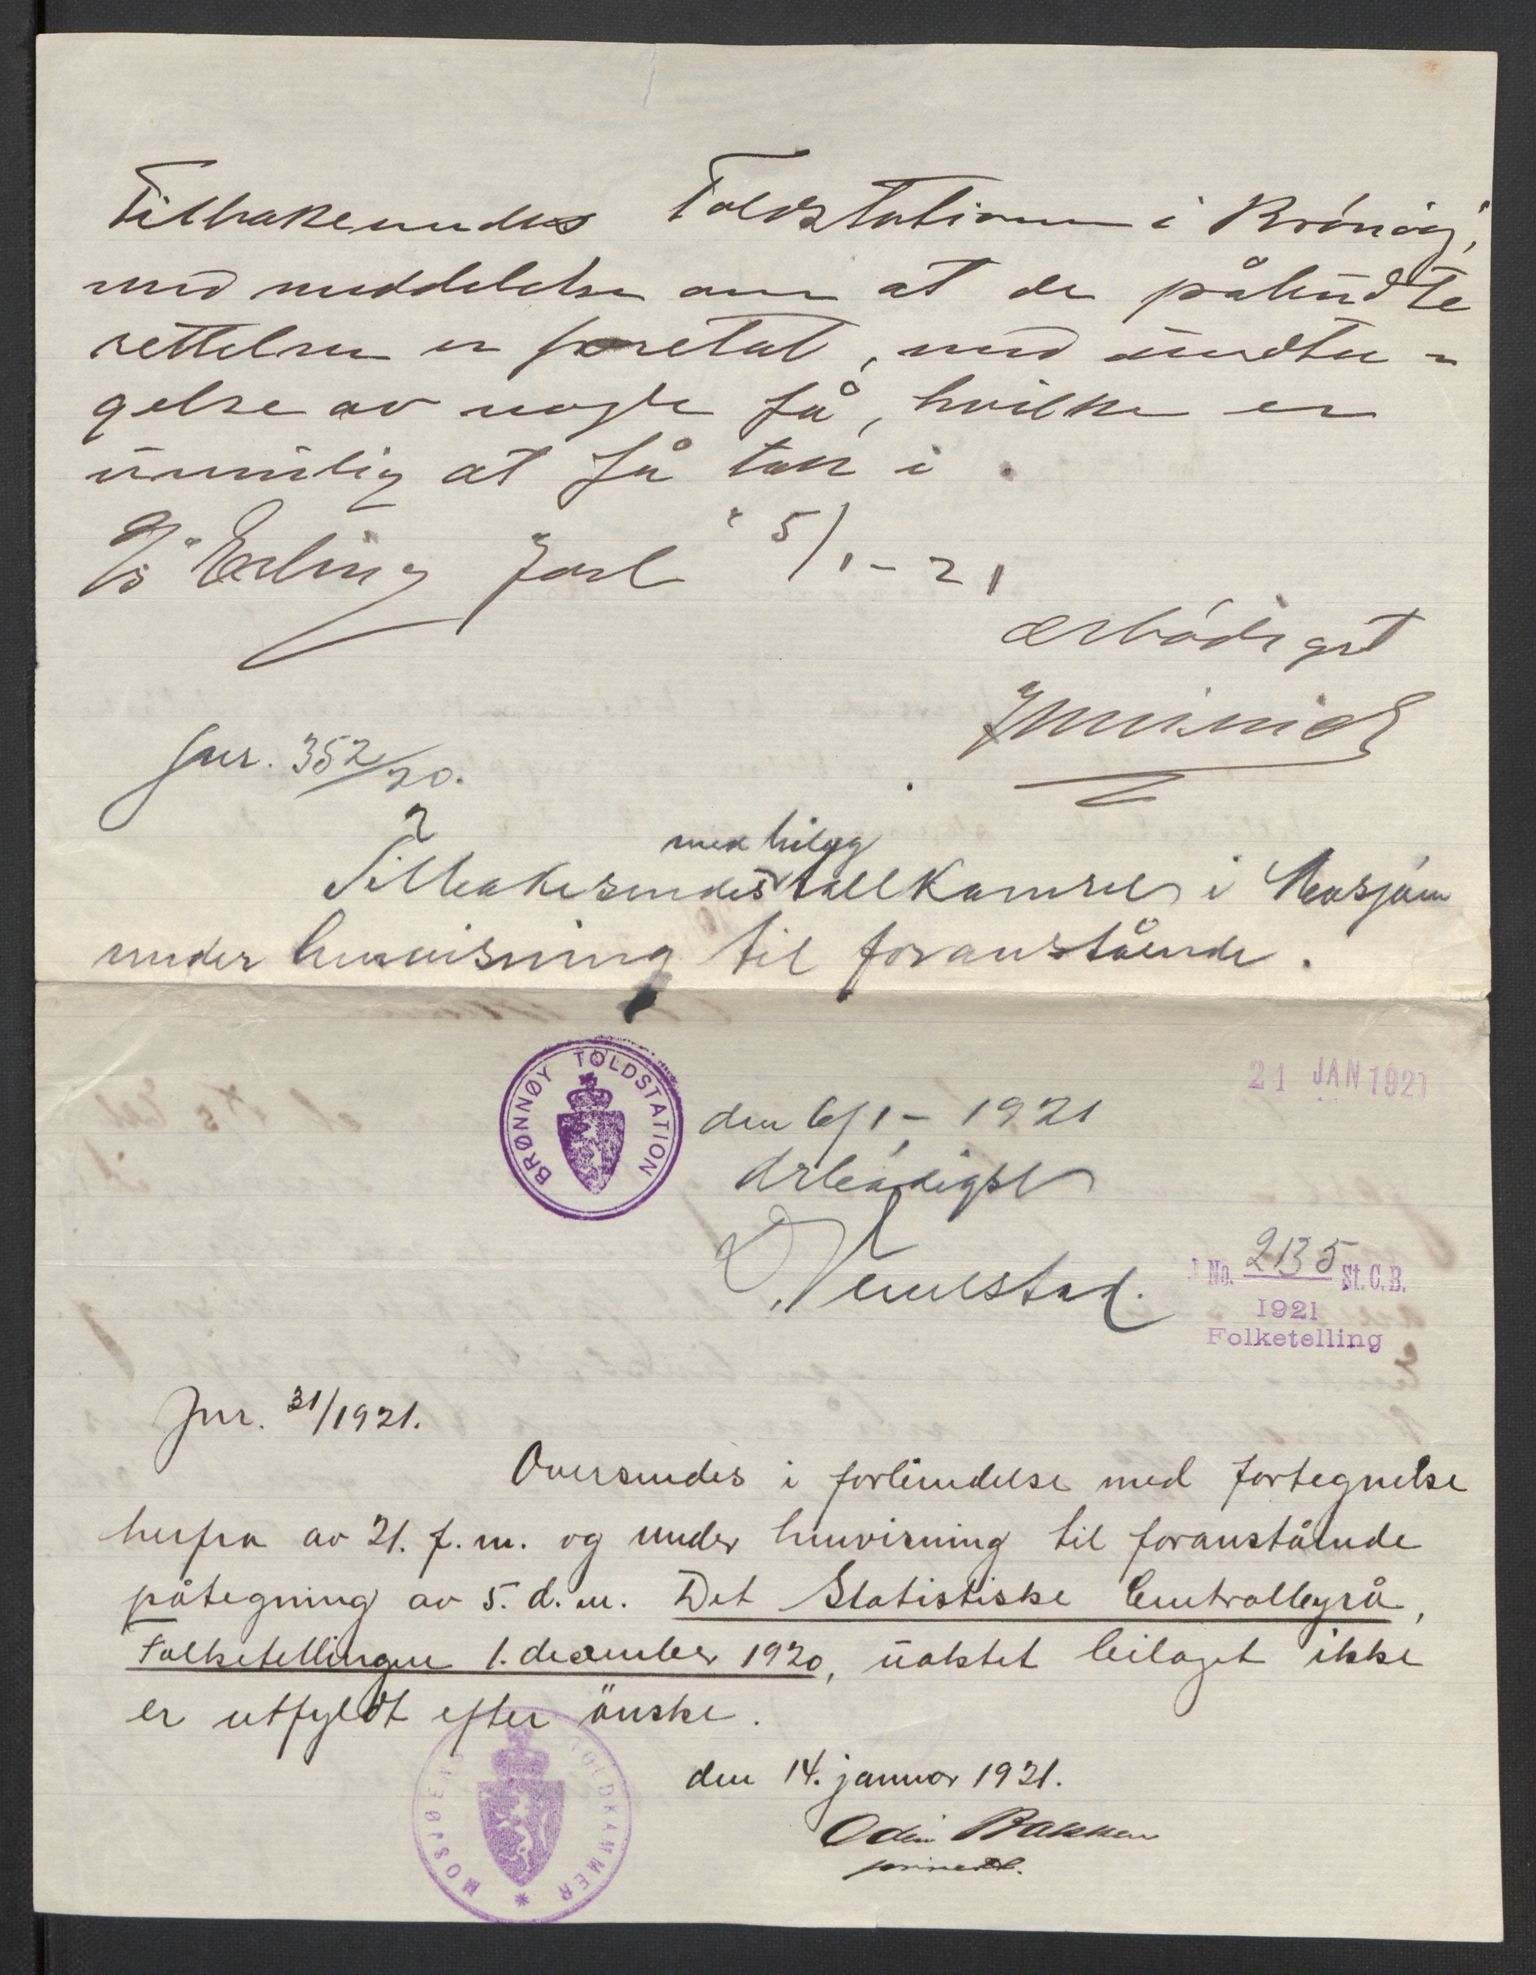 Tilbakesendes Toldstationen i Brönöy,
med meddelelse om at de påbudte
rettelser er foretat, med undta-
gelse av nogle få, hvilke er
umulig at få tak i.
D/S "Erling Jarl" 5/1-21
ærbödigst
Jnr. 352/20.
med bilag
Tilbakesendes tollkamret i Mosjöen
under henvisning til foranstående.
BRØNNØY TOLDSTATION
21 JAN 1921
den 6/1 - 1921
Ærbödigst
J No. 2135 St. C. B.
1921
Folketelling
Jnr. 31/1921.
Oversendes i forbindelse med fortegnelse
herfra av 21. f. m. og under henvisning til foranstående
påtegning av 5. d. m. Det Statistiske Centralbyrå,
Folketellingen 1. december 1920, uaktet bilaget ikke
er utfyldt efter önske.
MOSJØENS TOLDKAMMER
den 14. januar 1921.
Odin Bakken